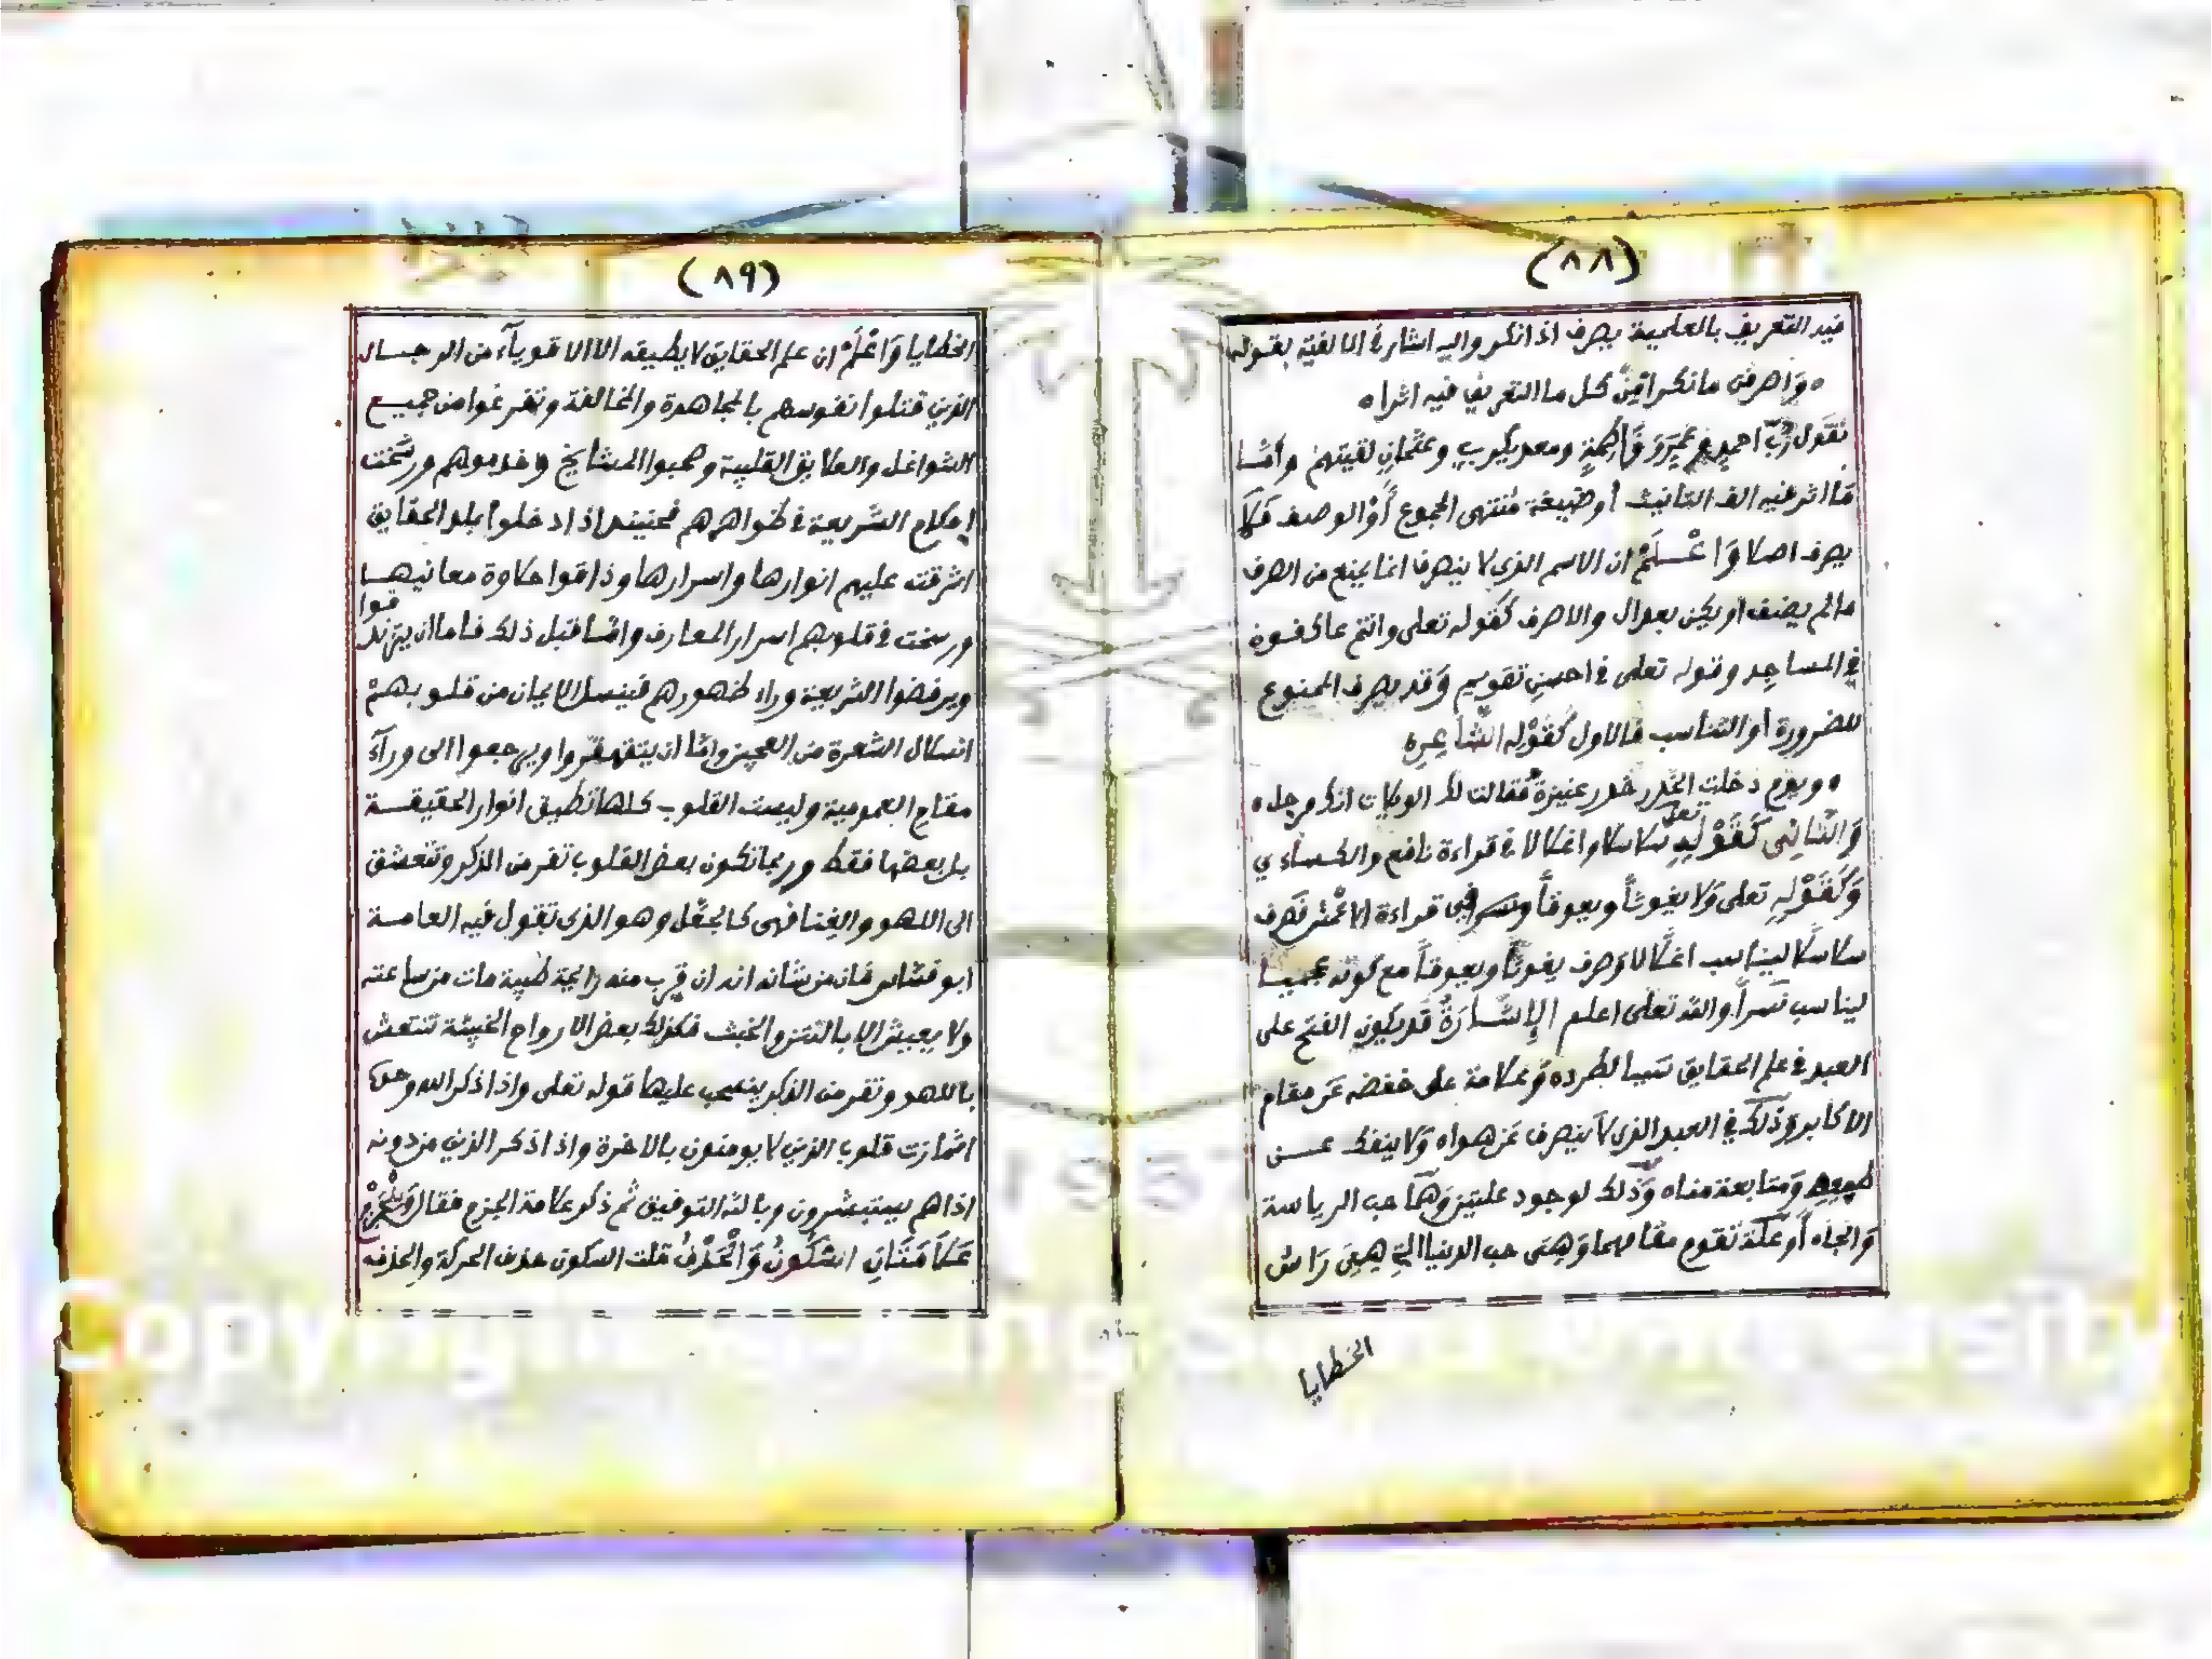 (٨٨)
فيه التعريف بالعلمية يصرف اذا نكر واليه اشار في الالفية بقوله
ه وَاصرفن ما نكرا مِنْ كل ما التعريف فيه اثرا ه
تقول رُبّ احمدٍ وعُمَيرٍ وفَاطِمَةٍ ومعد يكربٍ وعثمانٍ لقيتهم وامّا
ما اثر فيه الف التانيث أوصيغة مُنتهى الجموع أَوْ الوصف فلا
يصرف اصلا وَاعْلَمْ ان الاسم الذي لا ينصرف انما يمنع من الصرف
ما لم يضف او يكن بعد ال والاصرف كقوله تعلى وانتم عاكفون
في المساجِد وقوله تعلى في احسنِ تقويم وَقد يصرف الممنوع
للضرورة أو التناسب فالاول كَقَوْله الشاعِره
ه ويوم دخلت الخدر خدر عنيزة فقالت لك الويلات انك مرجل ه
وَالثانِى كَقَوْلِهِ تعلى سلاسلا واغلالا في قراءة نافع والكساءي
وَكَقَوْلِهِ تعلى وَلا يغوثاً ويعوقاً ونسرا في قراءة الاعْمش فصرف
سلاسلا ليناسب اغلالا وَصرف يغوثاً ويعوقاً مع كونه عجميا
ليناسب نسراً والله تعلى اعلم الإشَارَةُ قد يكون الفتح على
العبد في علم الحقايق سَببا لطرده وَعلامة على خفضه عَن مقام
الاكابر وَذلك في العبد الذي لا ينصرف عَن هواه وَلا ينفك عن
طبعه وَمتابعة مناه وَذلك لوجود علتين وَهمَا حب الرياسة
وَالجاه أو علّة تقوم مقامهما وَهِىَ حب الدنيا التي هِىَ رَاس
الخطايا
(٨٩)
الخطايا وَاعْلَمْ ان علم الحقايق لا يطيقه الا الاقوياء من الرجال
الذين قتلوا نفوسهم بالمجاهدة والمخالفة وتفرغوا من جميع
الشواغل والعلايق القلبية وصحبوا المشايخ وخدموهم ورسَخت
احكام الشريعة في ظواهرهم فحينيذ اذا دخلوا بلد الحقايق
اشرقت عليهم انوارها واسرارها وذاقوا حلاوة معانيها
ورسخت في قلوبهم اسرار المعارف وامّا قبل ذلك فاما ان يتزندقوا
ويرفضوا الشريعة وراء ظهورهم فينسل الايمان من قلوبهمْ
انسلال الشعرة من العجين وامّا ان يتقهقروا ويرجعوا الى ورآء
مقام العمومية وليست القلوب كلها تطيق انوار الحقيقة
بل بعضها فقط وربما تكون بعض القلوب تفر من الذكر وتتعشق
الى اللهو والغنا فهى كالجعَل وهو الذى تقول فيه العامة
ابو فساس فان من شانه انه ان قرب منه رايحة طيبة مات من ساعته
ولا يعيش الا بالنتن والخبث فكذلك بعض الارواح الخبيثة تنتعش
باللهو وتفر من الذكر ينسحب عليها قوله تعلى واذا ذكر الله وحده
اشمازت قلوب الذين لا يومنون بالاخرة واذا ذكر الذين من دونه
اذا هم يستبشرون وبالله التوفيق ثم ذكر علامة الجزم فقال وَلِلْجَزْمِ
عَلامَتَانِ السُّكُونُ وَالْحَذْفُ قلت السكون حذف الحركة والحذف